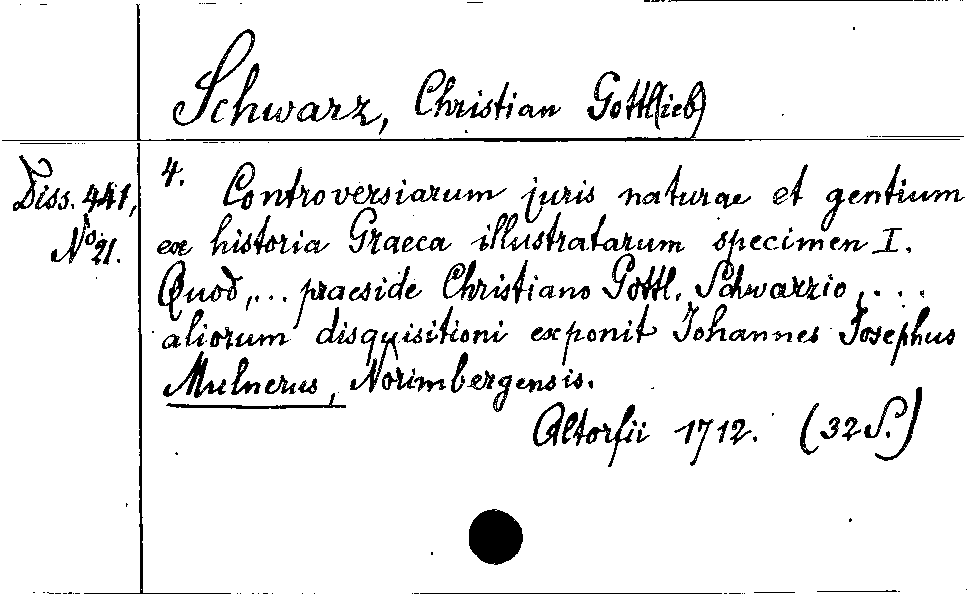 Schwarz, Christian Gottl(ieb)
Diss. 441,
No 21.
4. Controversiarum juris naturae et gentium
ex historia Graeca illustratarum specimen I.
Quod,... praeside Christiano Gottl. Schwarzio,...
aliorum disquisitioni exponit Johannes Josephus
Mulnerus, Norimbergensis.
Altorfii 1712. (32 S.)